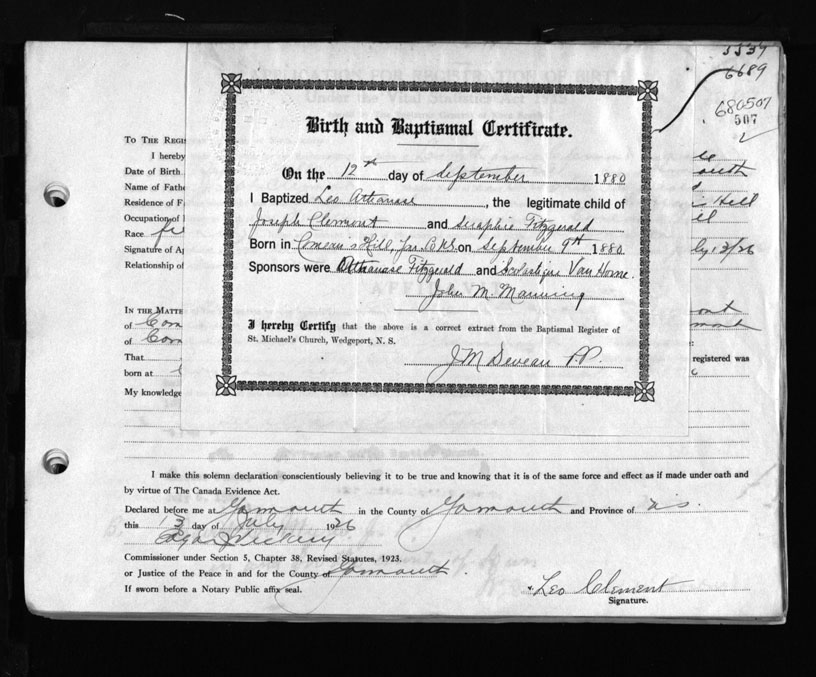 5539
6689
680507
507
Birth and Baptismal Certificate.
On the 12th day of September 1880
I Baptized Leo Athanase, the legitimate child of
Joseph Clermont and Seraphie Fitzgerald
Born in Comeau's Hill, on September 9th 1880
Sponsors were Athanase Fitzgerald and Scholastique Van Horne.
John M. Manning
I hereby Certify that the above is a correct extract from the Baptismal Register of
St. Michael's Church, Wedgeport, N. S.
J M Deveau P.P.
TO THE REGIS
I hereby
Date of Birth
Name of Fathe
Residence of F
Hill
Occupation of
Race
Signature of Ap
July 13/26
Relationship of
IN THE MATTE
of Com
of Com
That
registered was
born at
My knowledge
I make this solemn declaration conscientiously believing it to be true and knowing that it is of the same force and effect as if made under oath and
by virtue of The Canada Evidence Act.
Declared before me at Yarmouth in the County of Yarmouth and Province of N.S.
this 13 day of July 1926
Edgar
Commissioner under Section 5, Chapter 38, Revised Statutes, 1923.
or Justice of the Peace in and for the County of Yarmouth.
If sworn before a Notary Public affix seal.
Leo Clement
Signature.